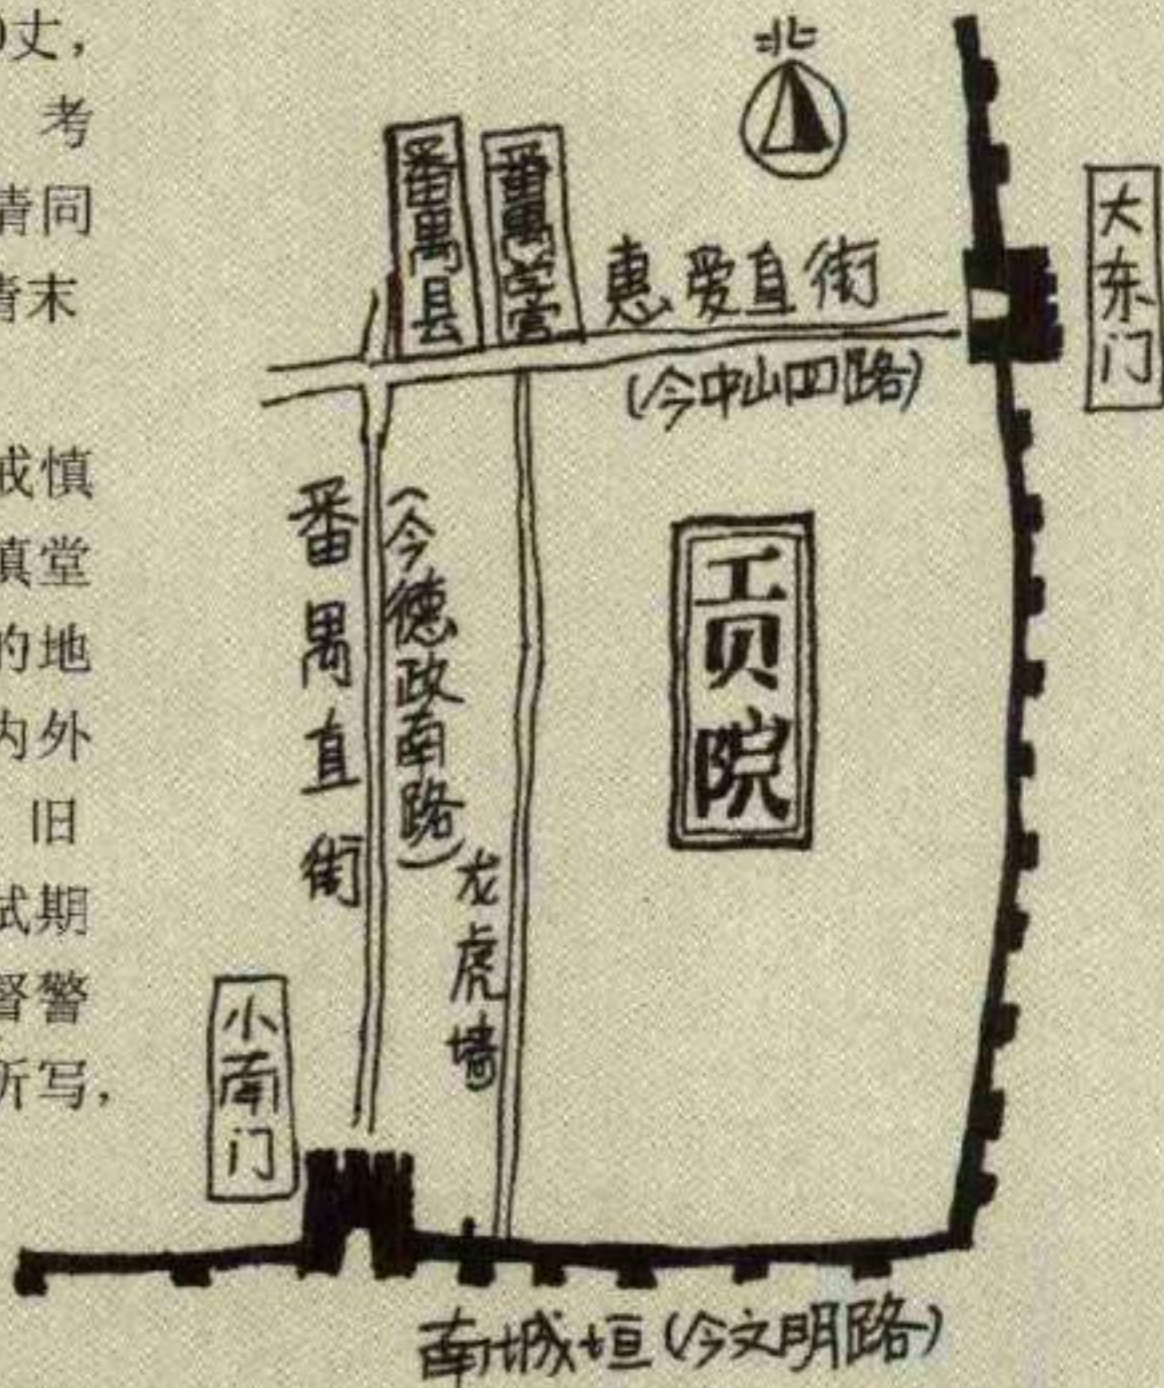 丈，
考
清同
清末
戒慎
慎堂
的地
内外
旧
试期
督警
所写，
北
番禺县
番禺学宫
惠爱直街
(今中山四路)
大东门
番禺直街
(今德政南路)
龙虎墙
贡院
小南门
南城垣(今文明路)